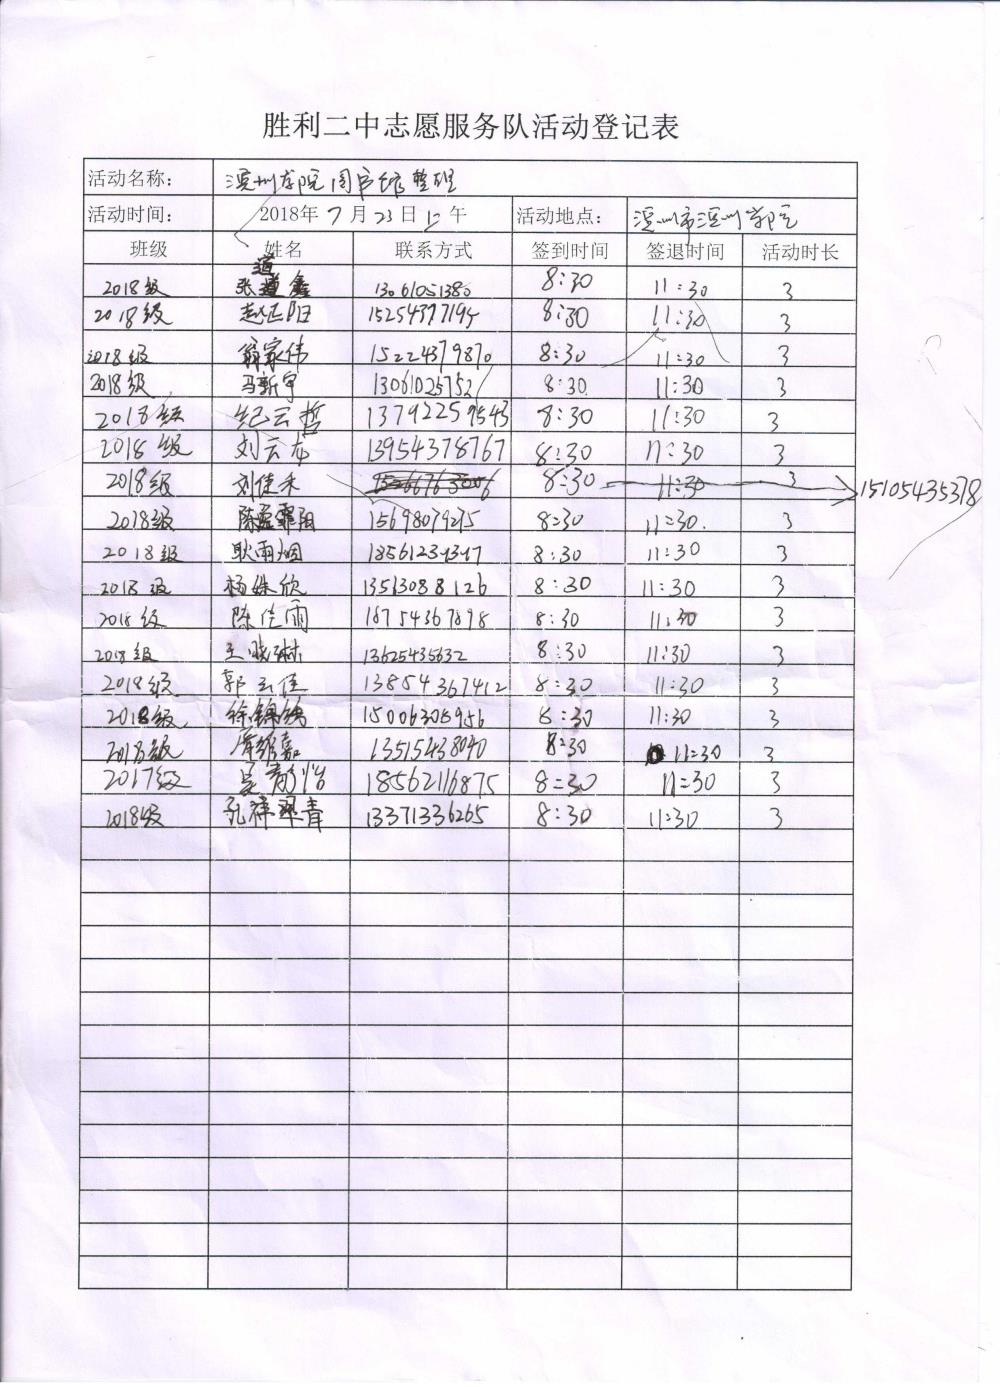 胜利二中志愿服务队活动登记表
活动名称： 滨州学院图书馆整理
活动时间： 2018年 7 月 23 日 上 午 活动地点： 滨州市滨州学院
班级 姓名 联系方式 签到时间 签退时间 活动时长
道
2018级 张 鑫 13061051380 8:30 11:30 3
2018级 赵正阳 15254377194 8:30 11:30 3
2018级 翁家伟 15224379870 8:30 11:30 3
2018级 马新宇 13061025752 8:30 11:30 3
2018级 纪云哲 13792259543 8:30 11:30 3
2018级 刘云 13954378767 8:30 11:30 3
2018级 刘佳禾 8:30 11:30 3 15105435378
2018级 陈孟霏阳 15698079275 8:30 11:30. 3
2018级 耿雨烟 8:30 11:30 3
2018级 杨姝欣 13513088126 8:30 11:30 3
2018级 陈佳雨 18754367898 8:30 11:30 3
2018级 王晓琳 13625435632 8:30 11:30 3
2018级 郭云佳 13854367412 8:30 11:30 3
2018级 徐锦 15006308956 8:30 11:30 3
2018级 嘉 13515438040 8:30 11:30 3
2017级 吴静怡 18562116875 8:30 11:30 3
2018级 孔祥翠青 13371336265 8:30 11:30 3